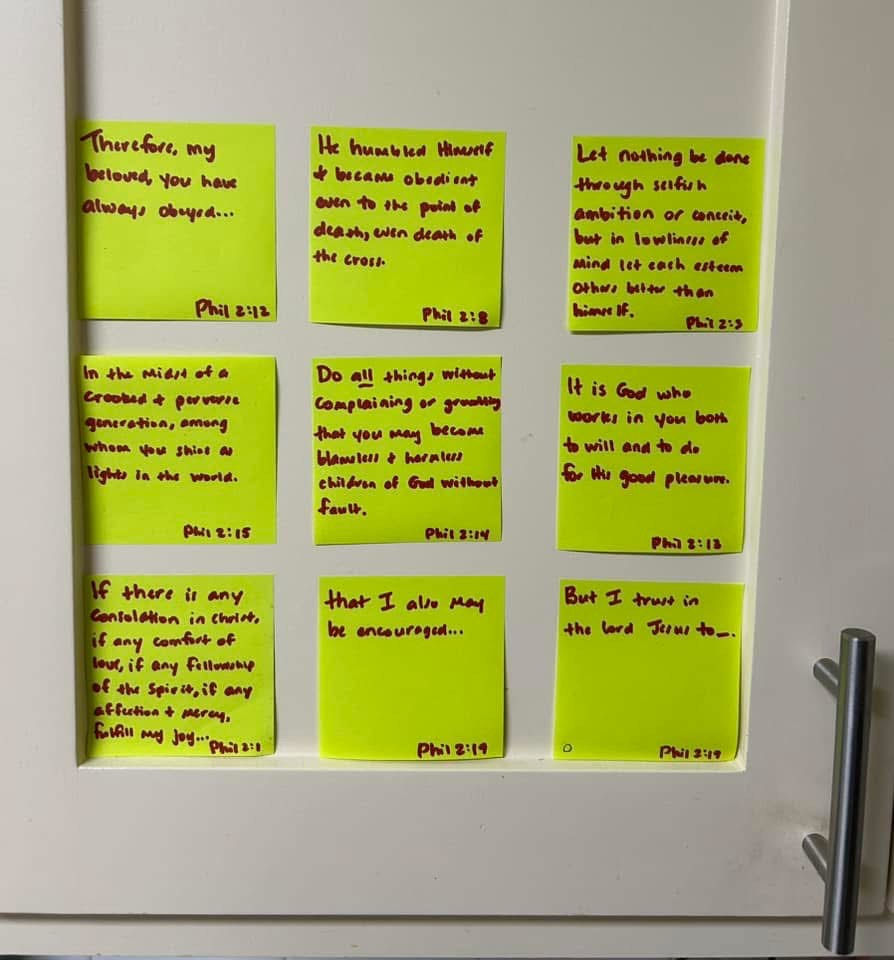 Therefore, my
beloved, you have
always obeyed...
Phil 2:12
He humbled Himself
+ became obedient
even to the point of
death, even death of
the cross.
Phil 2:8
Let nothing be done
through selfish
ambition or conceit,
but in lowliness of
mind let each esteem
others better than
himself.
Phil 2:3
In the midst of a
crooked + perverse
generation, among
whom you shine as
lights in the world.
Phil 2:15
Do all things without
complaining or grumbling
that you may become
blameless + harmless
children of God without
fault.
Phil 2:14
It is God who
works in you both
to will and to do
for His good pleasure.
Phil 2:13
If there is any
consolation in Christ,
if any comfort of
love, if any fellowship
of the Spirit, if any
affection + mercy,
fulfill my joy...
Phil 2:1
that I also may
be encouraged...
Phil 2:19
But I trust in
the lord Jesus to_.
Phil 2:19